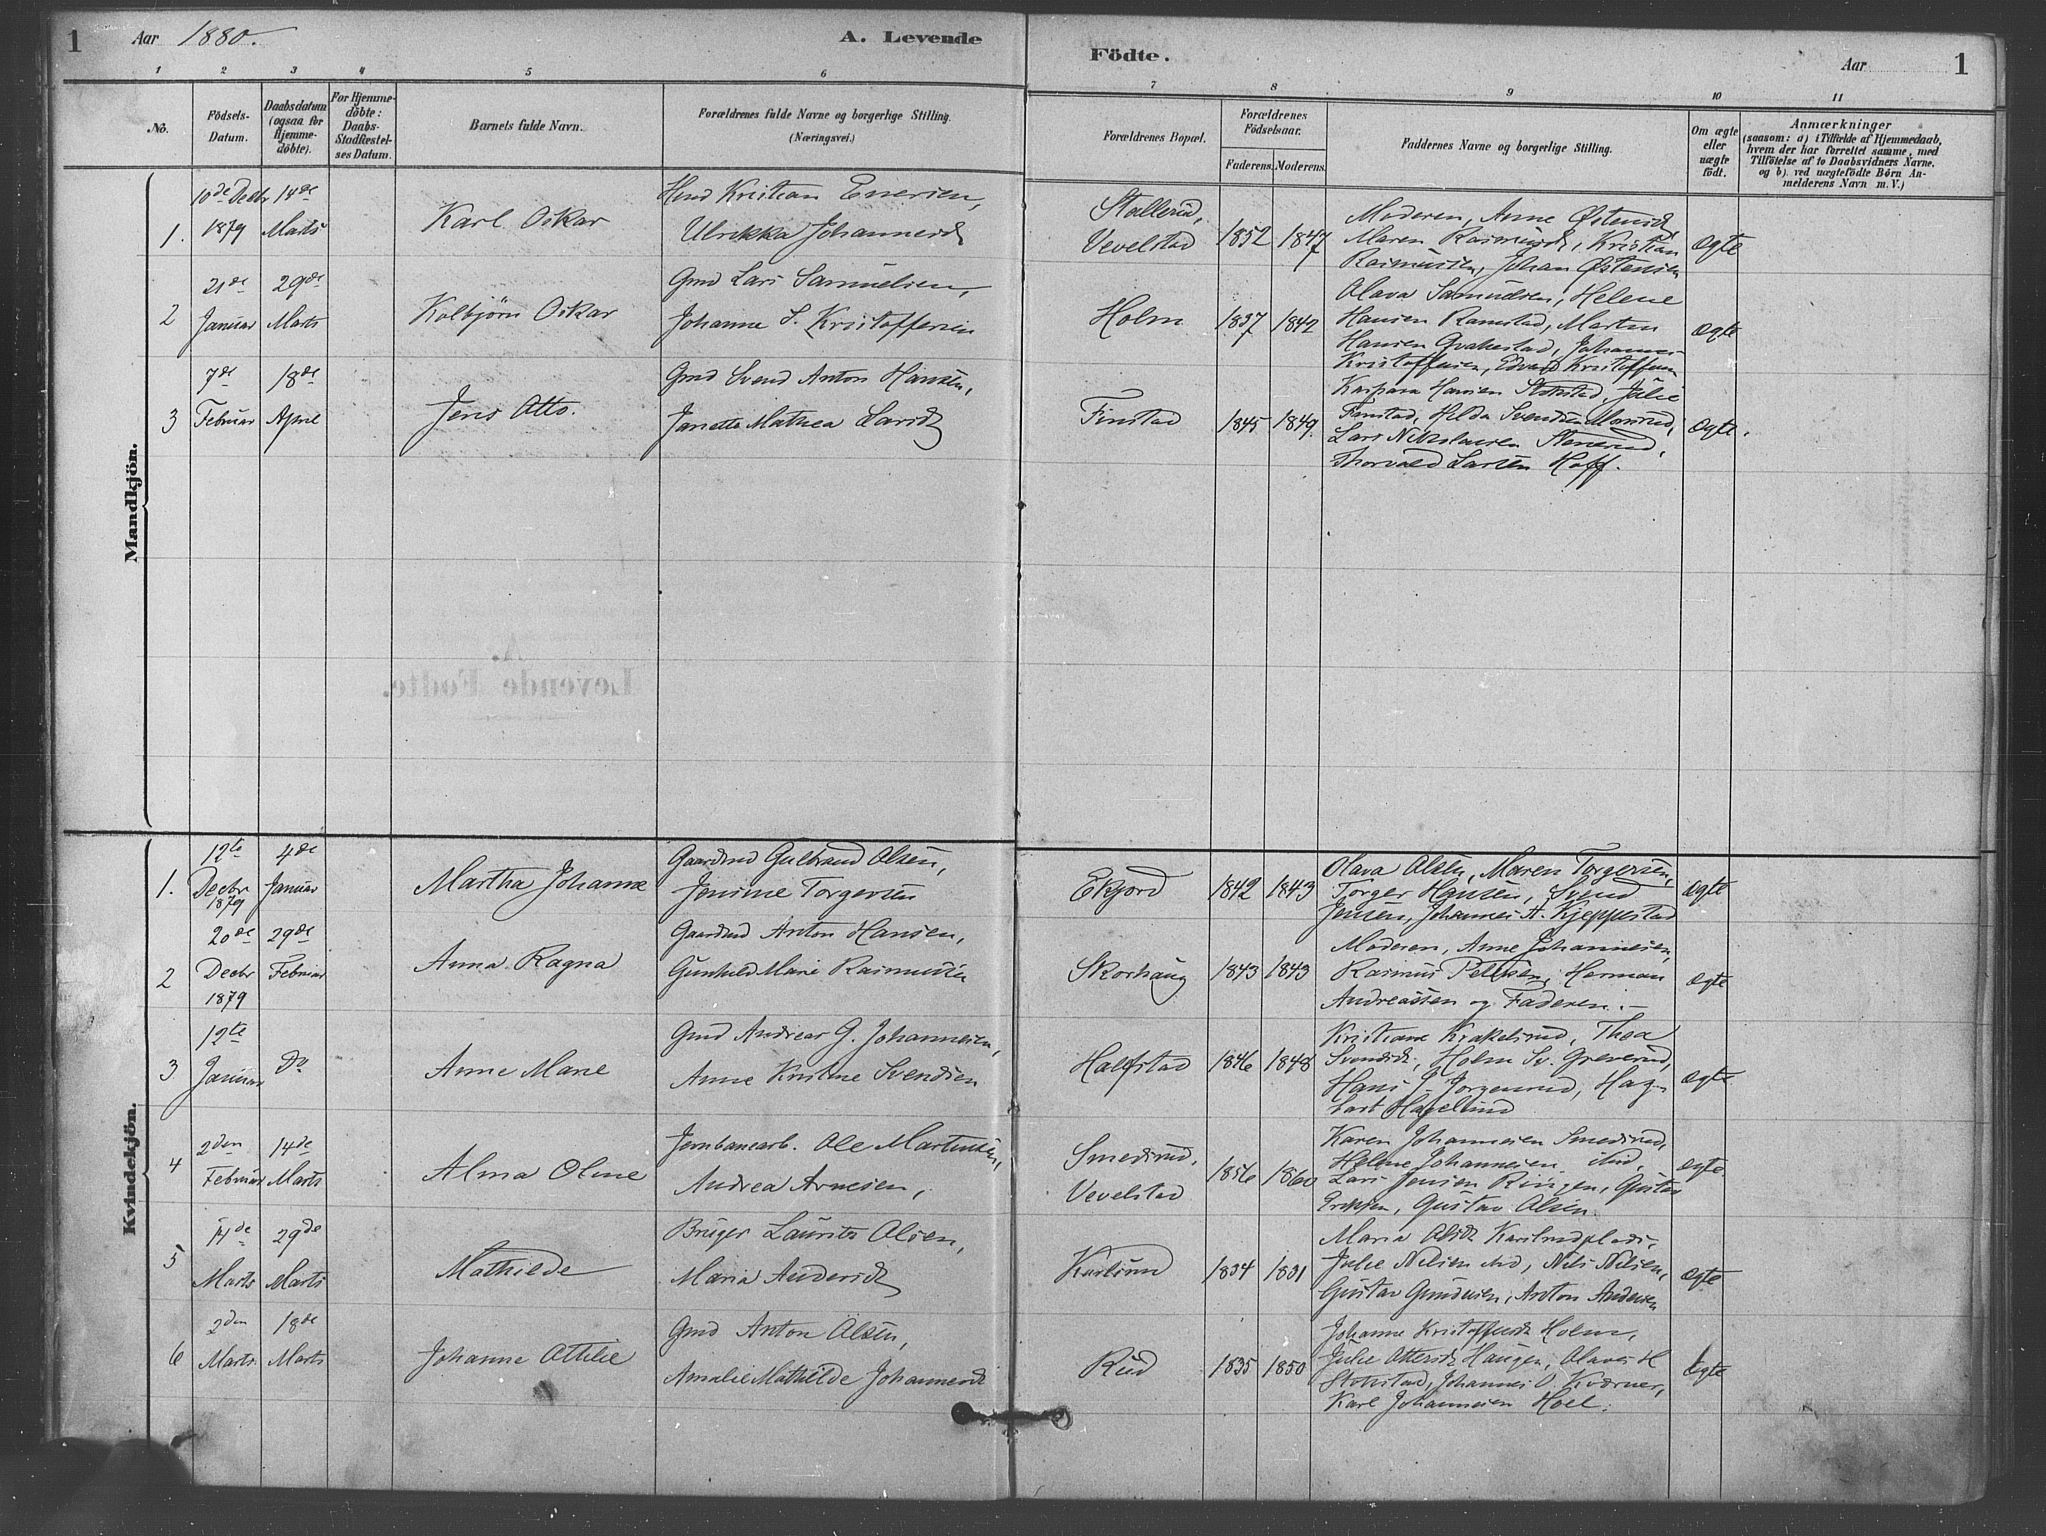 1 Aar 1880. A. Levende Födte. Aar 1
1 2 3 4 5 6 7 8 9 10 11
No.
Födsels-Datum.
Daabsdatum (ogsaa for Hjemme-döbte).
For Hjemme-döbte: Daabs-Stadfæstel-ses Datum.
Barnets fulde Navn.
Forældrenes fulde Navne og borgerlige Stilling.
(Næringsvei.)
Forældrenes Bopæl.
Forældrenes Födselsaar.
Faderens. Moderens.
Faddernes Navne og borgerlige Stilling.
Om ægte eller uægte födt.
Anmærkninger
(saasom: a) i Tilfælde af Hjemmedaab,
hvem der har forrettet samme, med
Tilföielse af to Daabsvidners Navne,
og b) ved uægtefödte Börn An-
melderens Navn m. V.)
Mandkjön.
1.
10de Decbr
1879
14de
Marts
Karl Oskar
Kristian Enersen,
Ulrikka Johannesd
Stallerud,
Vevelstad
1852 1847
Moderen, Anne Østensd,
Maren Rasmusd, Kristian
Rasmussen, Johan Østensen
ægte
2
21de
Januar
29de
Marts
Kolbjörn Oskar
Gmd Lars Samuelsen,
Johanne S. Kristoffersen
Holm
1837 1842
Olava Samuelsen, Helene
Hansen Ramstad, Martin
Hansen Gvakestad, Johannes
Kristoffersen, Edvard Kristoffersen
ægte
3
7de
Februar
18de
April
Jens Otto.
Gmd Svend Anton Hansen,
Janette Mathea Larsd
Finstad
1845 1849.
Kaspara Hansen Stokstad, Julie
Finstad, Helda Svendsen
Lars Nikolaisen Stenerud,
Thorvald Larsen Hoff.
ægte.
Kvindekjön.
1.
12te
Decbr
1879
4de
Januar
Martha Johanne
Gaardmd Gulbrand Olsen,
Jonine Torgersen
Ekjord
1842 1843
Olava Olsen, Maren Torgersen,
Torger Hansen, Svend
Jensen, Johannes A. Kjeppestad
ægte
2
20de
Decbr
1879
29de
Februar
Anna Ragna
Gaardmd Anton Hansen,
Gunhild Marie Rasmusdn
Skorhaug
1843 1843
Moderen, Anne Johannesen,
Rasmus Pettersen, Herman
Andreassen og Faderen.-
ægte
3
12te
Januar
Do
Anne Marie
Gmd Andreas G. Johannesen,
Anne Kristine Svendsen
Halfstad
1846 1848
Kristiane Krakelsrud, Thea
Svendsd, Holm Sv. Greverud,
Hans J. Jorgensrud, Hag-
bart Hagelund
ægte
4
2den
Februar
14de
Marts
Alma Oline
Jernbanearb. Ole Martinsen,
Andrea Arnesen,
Smedsrud,
Vevelstad
1856 1860
Karen Johannesen Smedsrud,
Helene Johannesen ibid,
Lars Jensen Ringen, Gustav
Eriksen, Gustav Olsen
ægte
5
14de
Marts
29de
Marts
Mathilde
Bruger Laurits Olsen,
Maria Andersd
Karlsrud
1834 1831
Maria Olsd Karlsrudplads,
Julie Nilsen ibid, Nils Nilsen,
Gustav Gundersen, Anton Andersen
ægte
6
2den
Marts.
18de
Marts
Johanne Ottilie
Gmd Anton Olsen,
Amalie Mathilde Johannesd
Rud
1835 1850
Johanne Kristoffersd Holm,
Julie Ottersd Haugen, Olaves H
Stokstad, Johannes O. Kværner,
Karl Johannesen Hoel.
ægte